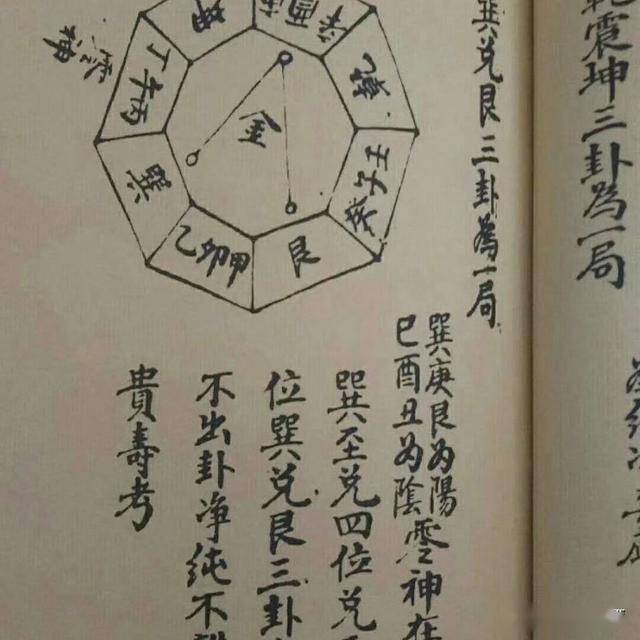 乾震坤三卦為一局
巽兑艮三卦為一局
巽庚艮为陽
巳酉丑为陰零神在
巽至兑四位兑
位巽兑艮三卦
不出卦净純不
貴壽考
坤
庚
乾
壬子癸
艮
甲卯乙
巽
丙午丁
金